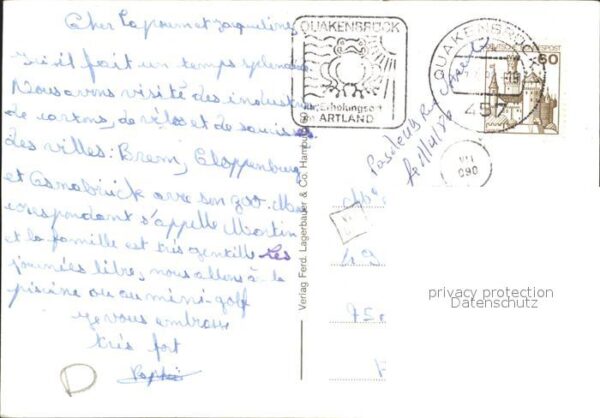 Cher Papounet Jacqueline
Ici il fait un temps splendide
Nous avons visité des industries
de cartons, de vélos et de saucisses
des villes: Brem, Cloppenburg
et Osnabrück avec son zoo. Mon
correspondant s'appelle Martin
et la famille est très gentille. Les
journées libres, nous allons à la
piscine ou au mini-golf
Je vous embrasse
très fort
D
Verlag Ferd. Lagerbauer & Co, Hamburg
QUAKENBRÜCK
Erholungsort
im ARTLAND
QUAKENBRÜCK
457
60
49
privacy protection
Datenschutz